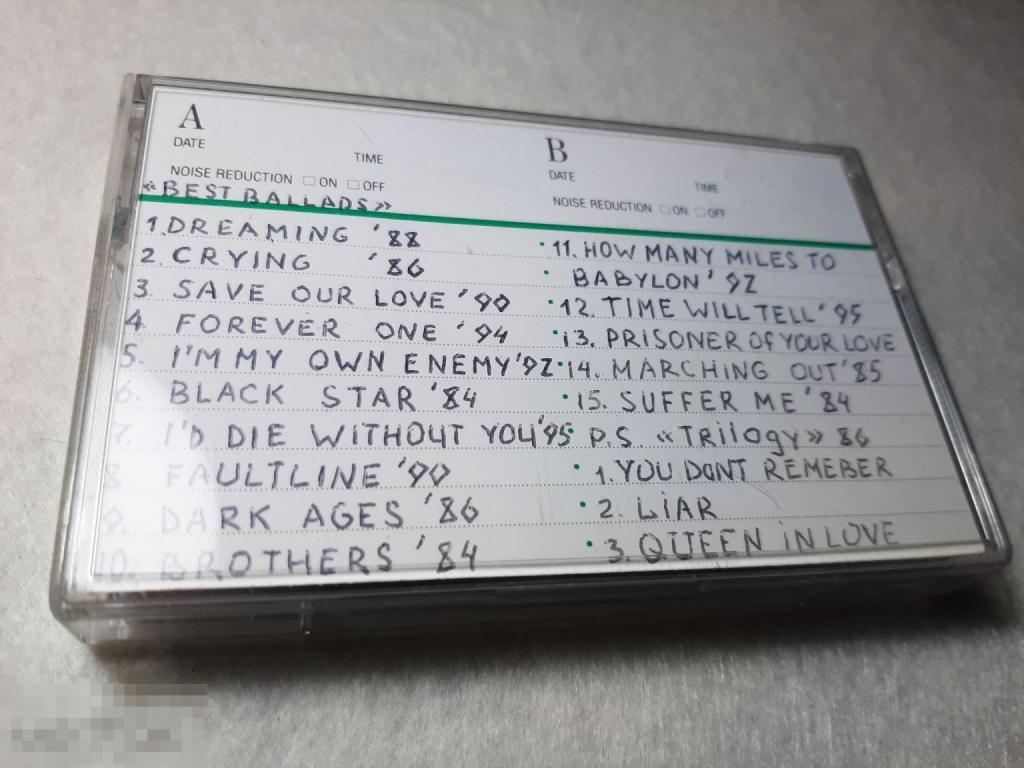 A
DATE
TIME
NOISE REDUCTION ☐ ON ☐ OFF
«BEST BALLADS»
1. DREAMING '88
2. CRYING '86
3 SAVE OUR LOVE '90
4. FOREVER ONE '94
5. I'M MY OWN ENEMY '92
6. BLACK STAR '84
7. I'D DIE WITHOUT YOU '95
8. FAULTLINE '90
9. DARK AGES '86
10. BROTHERS '84
B
DATE
TIME
NOISE REDUCTION ☐ ON ☐ OFF
11. HOW MANY MILES TO
BABYLON '92
12. TIME WILL TELL '95
13. PRISONER OF YOUR LOVE
14. MARCHING OUT '85
15. SUFFER ME '84
P.S. «TRilogy» 86
1. YOU DONT REMEBER
2. LiAR
3. QUEEN iN LOVE